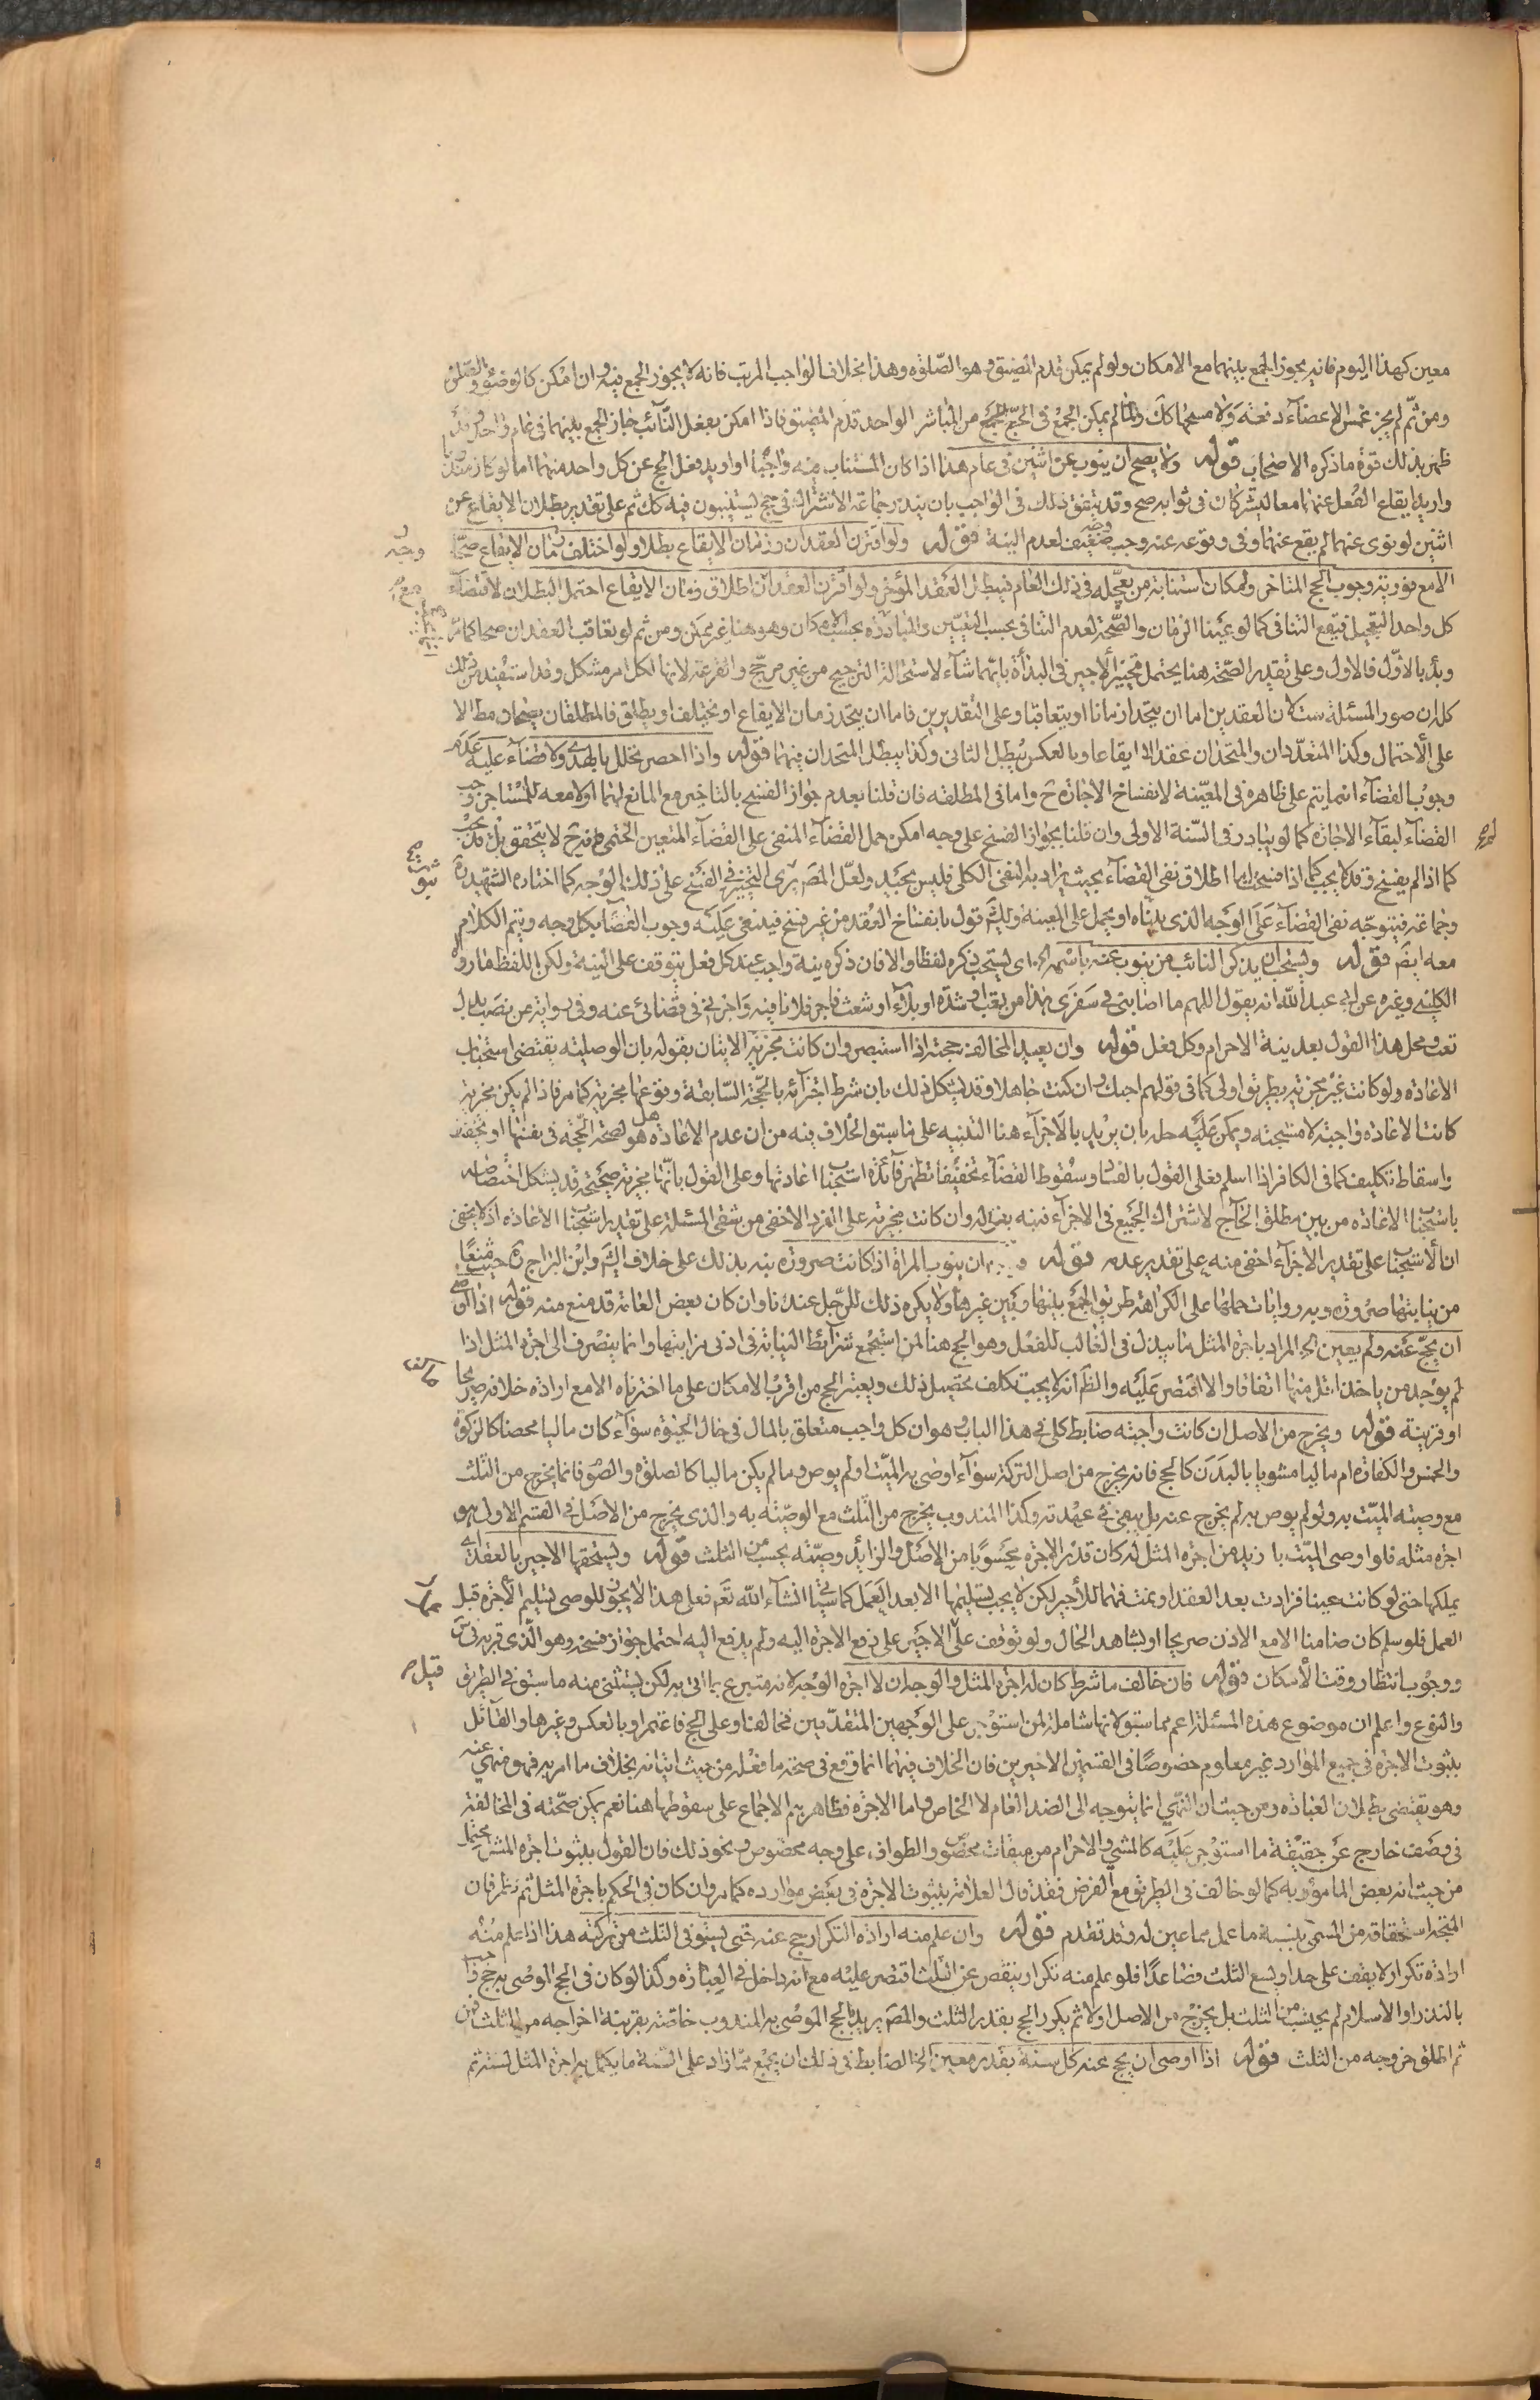 معين كهذا اليوم فانه يجوز الجمع بينهما مع الامكان ولو لم يمكن قدم المضيق وهو الصّلوة وهذا بخلاف الواجب المرتب فانه لا يجوز الجمع فيه وان امكن كالوضوء والصلوة
ومن ثمّ لم يجز غمس الاعضآء دفعة ولا مسحها كك ولمّا لم يمكن الجمع فى الحجّ من المباشر الواحد قدّم المضيّق فاذا امكن بفعل النّآئب جاز الجمع بينهما فى عام واحد وقد
ظهر بذلك قوّة ما ذكره الاصحاب قوله ولا يصح ان ينوب عن اثنين فى عام هذا اذا كان المستناب فيه واجبًا او اريد فعل الحج عن كل واحد منهما اما لو كان مندوبا
واريد ايقاع الفعل عنهما معا ليشتركان فى ثوابه صح وقد يتفق ذلك فى الواجب بان ينذر جماعة الاشتراك فى حج يستنيبون فيه كك ثم على تقدير بطلان الايقاع عن
اثنين لو نوى عنهما لم يقع عنهما وفى وقوعه عنه وجه ضعيف لعدم النية قوله ولو اقترن العقدان وزمان الايقاع بطلا ولو اختلف زمان الايقاع صحّا
الا مع فورية وجوب الحج المتاخر وامكان استنابة من يعجّله فى ذلك العام فيبطل العقد المؤخر ولو اقترن العقدان واطلاق زمان الايقاع احتمل البطلان لاقتضآء
كل واحد التعجيل فيقع التنافى كما لو عيّنا الزمان والصّحة لعدم التنافى بحسب التعيين والمبادرة بحسب الامكان وهو هنا غير ممكن ومن ثم لو تعاقب العقدان صحا كما مرّ
وبدء بالاوّل فالاول وعلى تقدير الصّحة هنا يحتمل تخيير الاجير فى البدأة بايّهما شآء لاستحالة الترجيح من غير مرجّح والقرعة لانها لكل امر مشكل وقد استفيد من ذلك
كله ان صور المسئلة ست لان العقدين اما ان يتحدا زمانا او يتعاقبا وعلى التقديرين فاما ان يتحد زمان الايقاع او يختلف او يطلق فالمطلقان يصحان مطلقا الا
على الاحتمال وكذا المتعدّدان والمتحدان عقدا لا ايقاعا وبالعكس يبطل الثانى وكذا يبطل المتحدان فيهما قوله واذا احصر تحلل بالهدى ولا قضآء عليه عدم
وجوب القضآء انما يتم على ظاهره فى المعيّنة لانفساخ الاجارة ح واما فى المطلقة فان قلنا بعدم جواز الفسخ بالتاخير مع المانع لهما اولا معه للمستاجر وجب
القضآء لبقآء الاجارة كما لو يبادر فى السّنة الاولى وان قلنا بجواز الفسخ على وجه امكن حمل القضآء المنفى على القضآء المتعين الحتمى فح لا يتحقق بل قد يجب
كما اذا لم يفسخ وقد لا يجب كما اذا فسخ اما اطلاق نفى القضآء بحيث يراد به النفى الكلى فليس بجيّد ولعلّ المصّ يرى التخيير فى الفسخ على ذلك الوجه كما اختاره الشهيد ره
وجماعة فيتوجّه نفى القضآء على الوجه الذى بيّناه او يحمل على المعينة ولك قول بانفساخ العقد من غير فسخ فينتفى عليه وجوب القضآ بكل وجه ويتم الكلام
معه ايضّ قوله ويستحب ان يذكر النائب من ينوب عنه باسمه الخ اى يستحب ذكره لفظا والا فان ذكره نية واجب عند كل فعل يتوقف على النية ولكن اللفظ ما رواه
الكلينى وغيره عن ابى عبد الله انه يقول اللهم ما اصابنى فى سفرى هذا من تعب او شدّة او بلآء او شعث فاجر فلانا فيه واجرنى فى قضائى عنه وفى رواية عن نصب بدل
تعب ومحل هذا القول بعد نية الاحرام وكل فعل قوله وان يعيد المخالف حجّته اذا استبصر وان كانت مجزية الاتيان بقوله بان الوصلية يقتضى استحباب
الاعادة ولو كانت غير مجزية بطريق اولى كما فى قولهم احبك وان كنت جاهلا وقد يشكل ذلك بان شرط اجزآئه بالحجّة السّابقة وقوعها مجزية كما مر فاذا لم يكن مجزية
كانت الاعادة واجبة لا مستحبة ويمكن عليه حله بان يريد بالاجزآء هنا التنبيه على ما سبق والخلاف فيه من ان عدم الاعادة هل هو لصحة الحجّة فى نفسها او تخفيف
واسقاط تكليف كما فى الكافر اذا اسلم فعلى القول بالفساد وسقوط القضآء تخفيفا تظهر فآئدة استحباب اعادتها وعلى القول بانّها مجزية صحيحة قد يشكل اختصاصه
باستحباب الاعادة من بين مطلق الحآج لاشتراك الجميع فى الاجزآء فنبه بقوله وان كانت مجزية على الفرد الاخفى من شقى المسئلة على تقدير استحباب الاعادة اذ لا يخفى
ان الاستحباب على تقدير الاجزآء اخفى منه على تقدير عدمه قوله ان ينوب المراة اذا كانت صرورة نبه بذلك على خلاف الشيخ وابن البراج ره حيث منعا
من نيابتها صرورة وبه روايات حملها على الكراهة طريق الجمع بينها وبين غيرها ولا يكره ذلك للرّجل عندنا وان كان بعض العامة قد منع منه قوله اذا اوصى
ان يحجّ عنه ولم يعين الخ المراد باجرة المثل ما يبذل فى الغالب للفعل وهو الحج هنا لمن استجمع شرآئط النيابة فى ادنى مراتبها وانما ينصرف الى اجرة المثل اذا
لم يوجد من ياخذ اقل منها اتفاقا والا اقتصر عليه والظّ انه لا يجب تكلف تحصيل ذلك ويعتبر الحج من اقرب الامكان على ما اخترناه الا مع ارادة خلافه صريحا
او قرينة قوله ويخرج من الاصل ان كانت واجبة ضابط كلى فى هذا الباب وهو ان كل واجب متعلق بالمال فى حال الحيوة سوآء كان ماليا محضا كالزكوة
والخمس والكفارة ام ماليا مشوبا بالبدن كالحج فانه يخرج من اصل التركة سوآء اوصى به الميّت او لم يوص وما لم يكن ماليا كالصلوة والصّوم فانما يخرج من الثلث
مع وصية الميّت به ولو لم يوص به لم يخرج عنه بل يبقى فى عهدته وكذا المندوب يخرج من الثلث مع الوصيّة به والذى يخرج من الاصل فى القسم الاول هو
اجرة مثله فلو اوصى الميّت بازيد من اجرة المثل له كان قدر الاجرة محسوبا من الاصل والزايد وصيّة يحسب من الثلث قوله ويستحقها الاجير بالعقد اى
يملكها حتى لو كانت عينا فزادت بعد العقد او نمت فهما للاجير لكن لا يجب تسليمها الا بعد العمل كما سيأتى انشآء الله نعم فعل هذا لا يجوز للوصى تسليم الاجرة قبل
العمل فلو سلم كان ضامنا الا مع الاذن صريحا او بشاهد الحال ولو توقف عمل الاجير على دفع الاجرة اليه ولم يدفع اليه احتمل جواز فسخه وهو الّذى قربه فى س
ووجوب انتظار وقت الامكان قوله فان خالف ما شرط كان له اجرة المثل والوجه ان لا اجرة الوجه لانه متبرع بما اتى به لكن يستثنى منه ما سبق فى الطريق
والنوع واعلم ان موضوع هذه المسئلة اعم مما سبق لانها شاملة لمن استوجر على الوجهين المتقدّمين فخالفا وعلى الحج فاعتمر او بالعكس وغيرها والقآئل
بثبوت الاجرة فى جميع الموارد غير معلوم خصوصًا فى القسمين الاخيرين فان الخلاف فيهما انما وقع فى صحة ما فعله من حيث انيانه بخلاف ما امر به فهو منهى عنه
وهو يقتضى بطلان العبادة ومن حيث ان النّهى انما يتوجه الى الضد العام لا الخاص واما الاجرة فظاهرهم الاجماع على سقوطها هنا نعم يمكن صحّته فى المخالفة
فى وصف خارج عن حقيقة ما استوجر عليه كالمشى والاحرام من ميقات مخصوص والطواف على وجه مخصوص ونحو ذلك فان القول بثبوت اجرة المثل محتمل
من حيث انه بعض المامور به كما لو خالف فى الطريق مع الغرض فقد قال العلامة بثبوت الاجرة فى بعض موارده كما مر وان كان فى الحكم باجرة المثل ثم نظر فان
المتجه استحقاقه من المسمى بنسبة ما عمل مما عين له وقد تقدم قوله وان علم منه ارادة التكرار حج عنه حتى يستوفى الثلث من تركته هذا اذا علم منه
ارادة تكرار لا يقف على حد او يسع الثلث فصاعدًا فلو علم منه تكرار ينقص عن الثلث اقتصر عليه مع انه داخل فى العبارة وكذا لو كان فى الحج الموصى به حج واجب
بالنذر او الاسلام لم يحتسب من الثلث بل يخرج من الاصل اولا ثم يكرر الحج بقدر الثلث والمصّ يريد بالحج الموصى به المندوب خاصة بقرينة اخراجه من الثلث
ثم اطلق خروجه من الثلث قوله اذا اوصى ان يحج عنه كل سنة بقدر معين الخ الضابط فى ذلك ان يجمع مما زاد على السّنة ما يكمل به اجرة المثل لسنة ثم